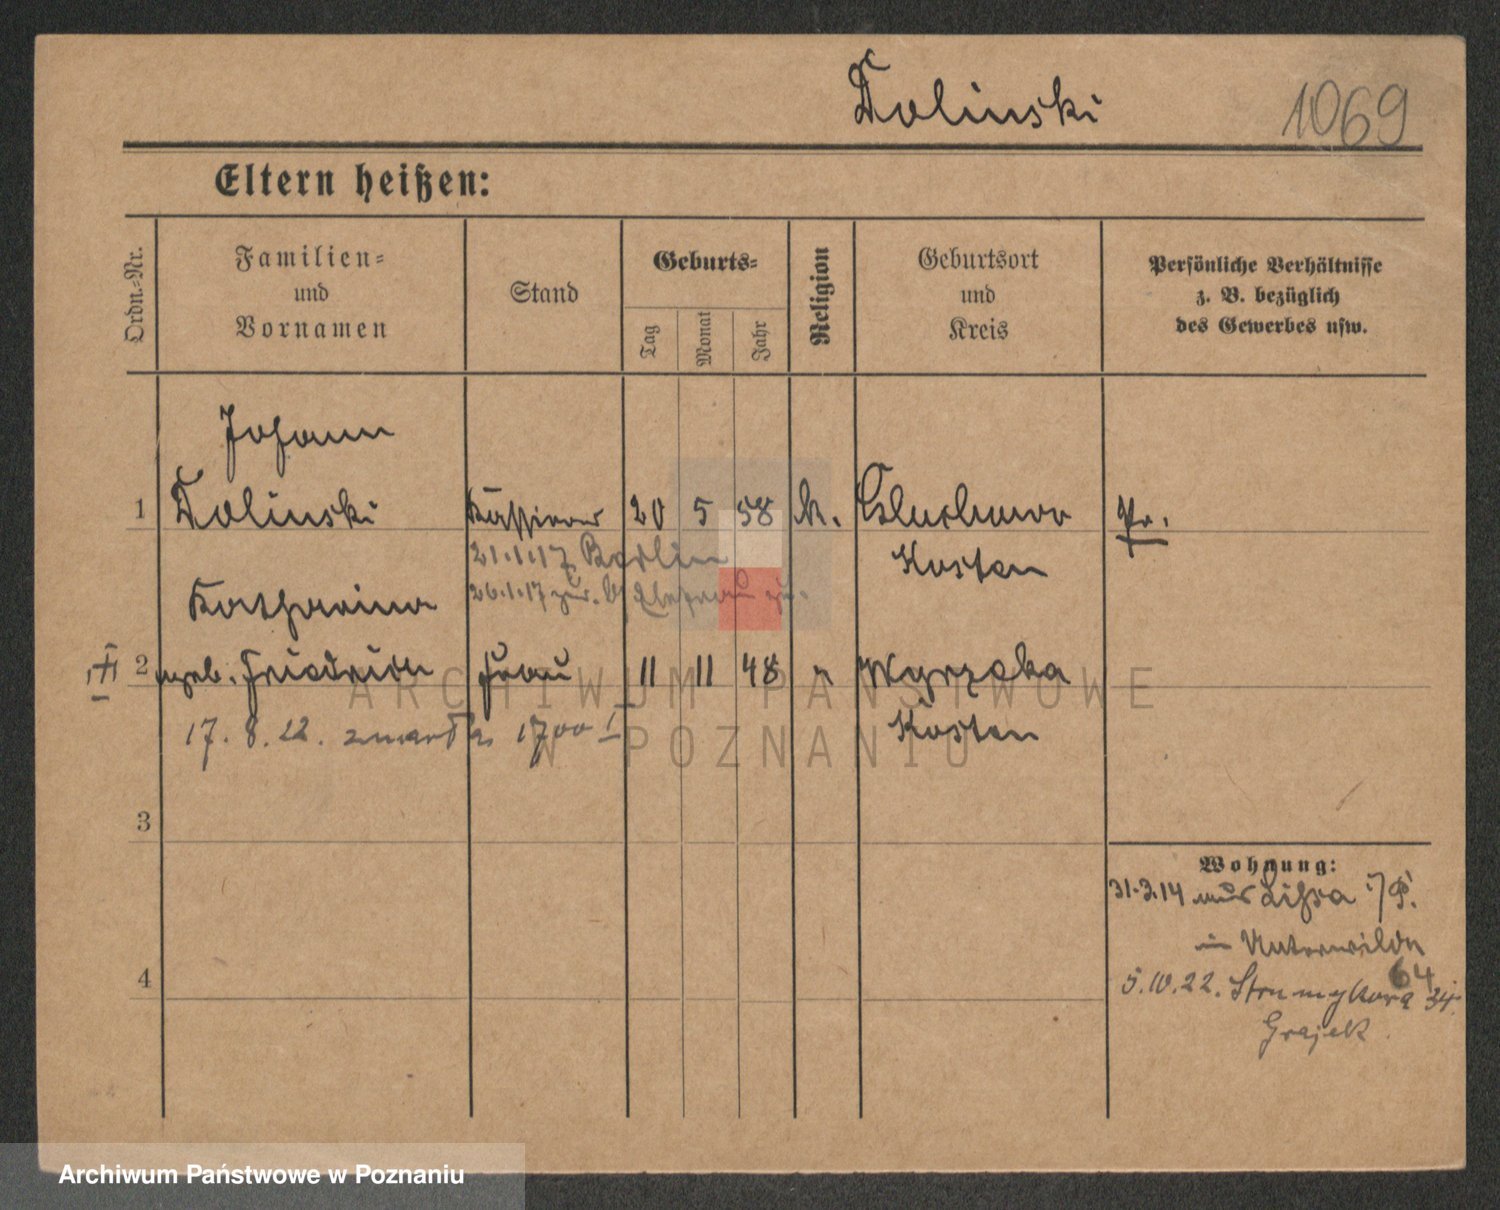 Dolinski 1069
Eltern heißen:
Ordn.-Nr.
Familien=
und
Vornamen
Stand
Geburts=
Tag
Monat
Jahr
Religion
Geburtsort
und
Kreis
Persönliche Verhältnisse
z. B. bezüglich
des Gewerbes usw.
Johann
1 Dolinski Kassierer 20 5 58 k. Pr.
21.1.17 Berlin Kosten
Katharina 26.1.17 zur.
2 geb. Friedrich Frau 11 11 48 "
17. 8. 22. zmarła 1700 I Kosten
3
Wohnung:
31.3.14 aus Lissa i/P.
in Unterwilda
64
4
5.10.22. Strumykowa 34
Grajek
ARCHIWUM PAŃSTWOWE
W POZNANIU
Archiwum Państwowe w Poznaniu